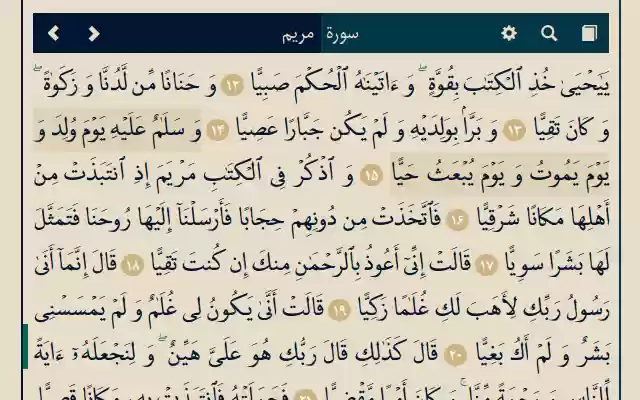 سورة مريم
يَٰيَحْيَىٰ خُذِ ٱلْكِتَٰبَ بِقُوَّةٍ ۖ وَ ءَاتَيْنَٰهُ ٱلْحُكْمَ صَبِيًّا ١٢ وَ حَنَانًا مِّن لَّدُنَّا وَ زَكَوٰةً ۖ
وَ كَانَ تَقِيًّا ١٣ وَ بَرًّۢا بِوَٰلِدَيْهِ وَ لَمْ يَكُن جَبَّارًا عَصِيًّا ١٤ وَ سَلَٰمٌ عَلَيْهِ يَوْمَ وُلِدَ وَ
يَوْمَ يَمُوتُ وَ يَوْمَ يُبْعَثُ حَيًّا ١٥ وَ ٱذْكُرْ فِى ٱلْكِتَٰبِ مَرْيَمَ إِذِ ٱنتَبَذَتْ مِنْ
أَهْلِهَا مَكَانًا شَرْقِيًّا ١٦ فَٱتَّخَذَتْ مِن دُونِهِمْ حِجَابًا فَأَرْسَلْنَآ إِلَيْهَا رُوحَنَا فَتَمَثَّلَ
لَهَا بَشَرًا سَوِيًّا ١٧ قَالَتْ إِنِّىٓ أَعُوذُ بِٱلرَّحْمَٰنِ مِنكَ إِن كُنتَ تَقِيًّا ١٨ قَالَ إِنَّمَآ أَنَا۠
رَسُولُ رَبِّكِ لِأَهَبَ لَكِ غُلَٰمًا زَكِيًّا ١٩ قَالَتْ أَنَّىٰ يَكُونُ لِى غُلَٰمٌ وَ لَمْ يَمْسَسْنِى
بَشَرٌ وَ لَمْ أَكُ بَغِيًّا ٢٠ قَالَ كَذَٰلِكِ قَالَ رَبُّكِ هُوَ عَلَىَّ هَيِّنٌ ۖ وَ لِنَجْعَلَهُۥٓ ءَايَةً
لِّلنَّاسِ وَ رَحْمَةً مِّنَّا ۚ وَ كَانَ أَمْرًا مَّقْضِيًّا ٢١ فَحَمَلَتْهُ فَٱنتَبَذَتْ بِهِۦ مَكَانًا قَصِيًّا